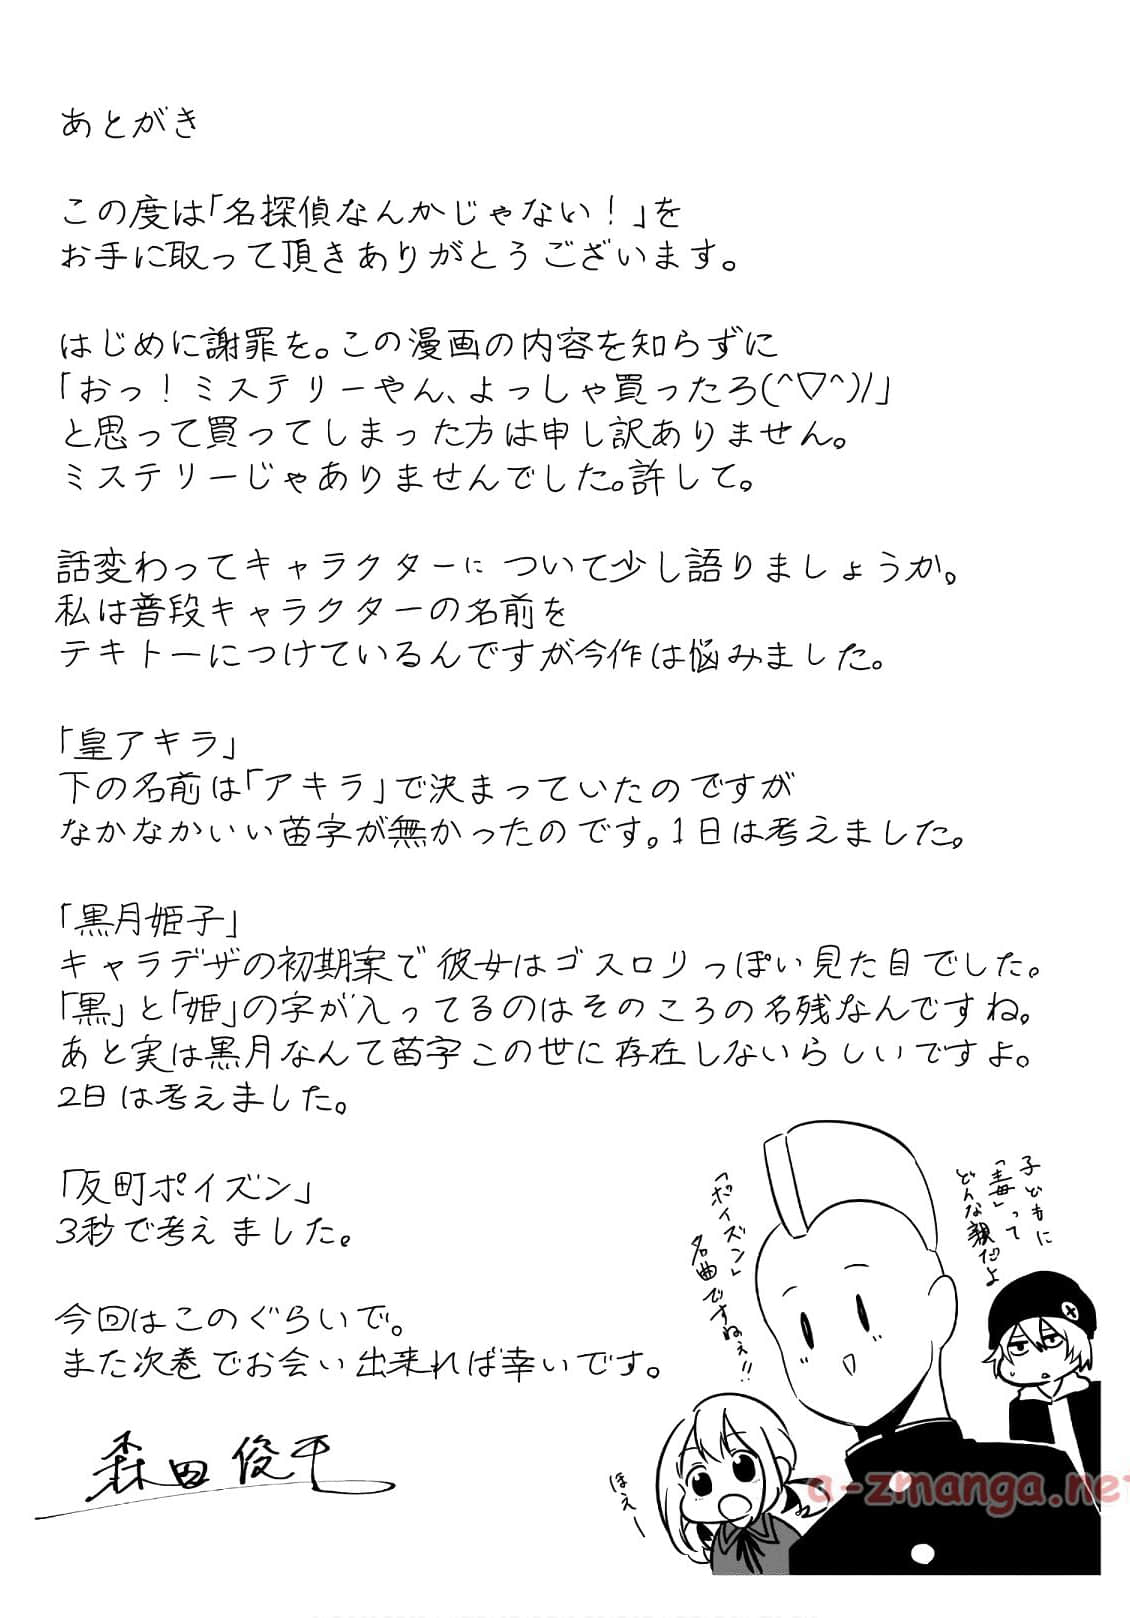 あとがき
この度は「名探偵なんかじゃない！」を
お手に取って頂きありがとうございます。
はじめに謝罪を。この漫画の内容を知らずに
「おっ！ミステリーやん、よっしゃ買ったろ(^▽^)/」
と思って買ってしまった方は申し訳ありません。
ミステリーじゃありませんでした。許して。
話変わってキャラクターについて少し語りましょうか。
私は普段キャラクターの名前を
テキトーにつけているんですが今作は悩みました。
「皇アキラ」
下の名前は「アキラ」で決まっていたのですが
なかなかいい苗字が無かったのです。1日は考えました。
「黒月姫子」
キャラデザの初期案で彼女はゴスロリっぽい見た目でした。
「黒」と「姫」の字が入ってるのはそのころの名残なんですね。
あと実は黒月なんて苗字この世に存在しないらしいですよ。
2日は考えました。
「反町ポイズン」
3秒で考えました。
今回はこのぐらいで。
また次巻でお会い出来れば幸いです。
森田俊平
子どもに
「毒」って
どんな親だよ
「ポイズン」
名曲ですねぇ!!
ほえー
a-zmanga.net